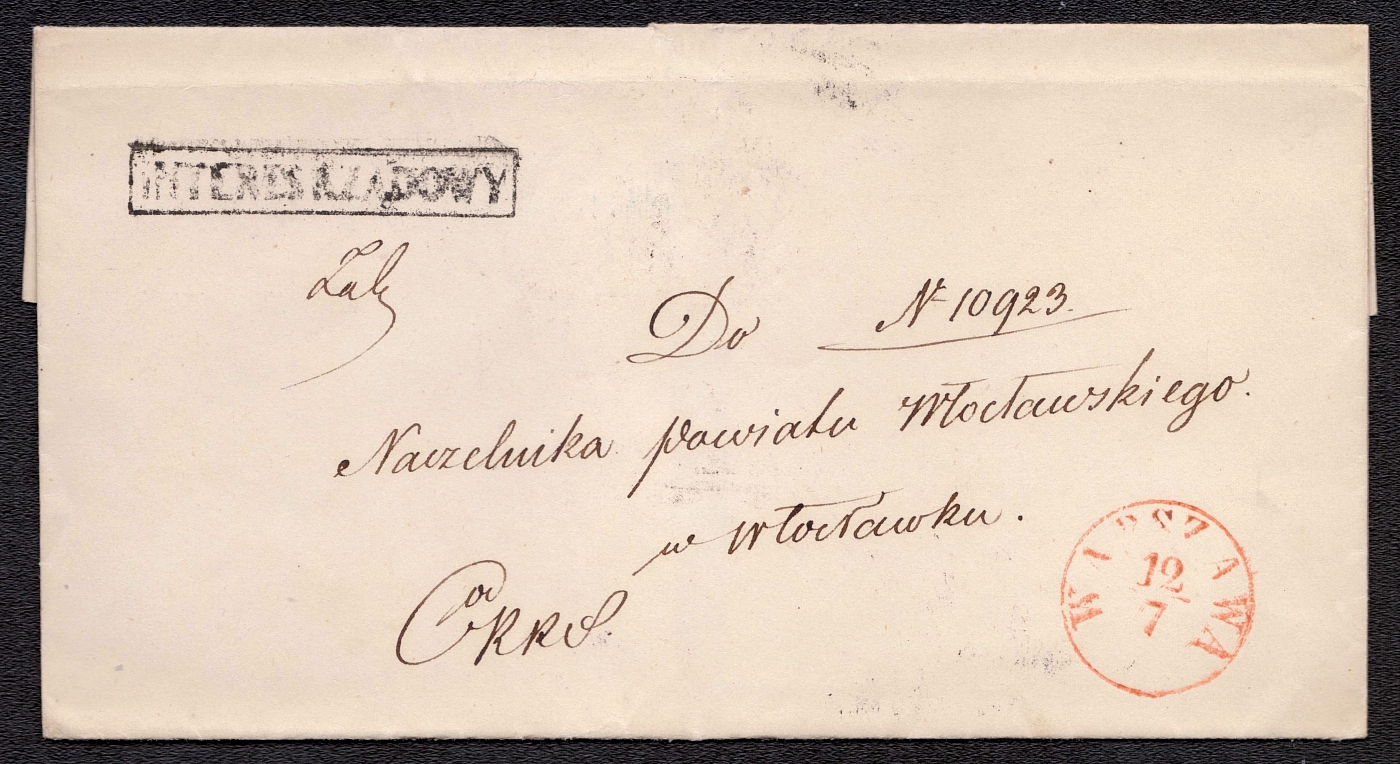 INTERES RZĄDOWY
Do № 10923.
Naczelnika Powiatu Włocławskiego.
w Włocławku.
WARSZAWA
12
7